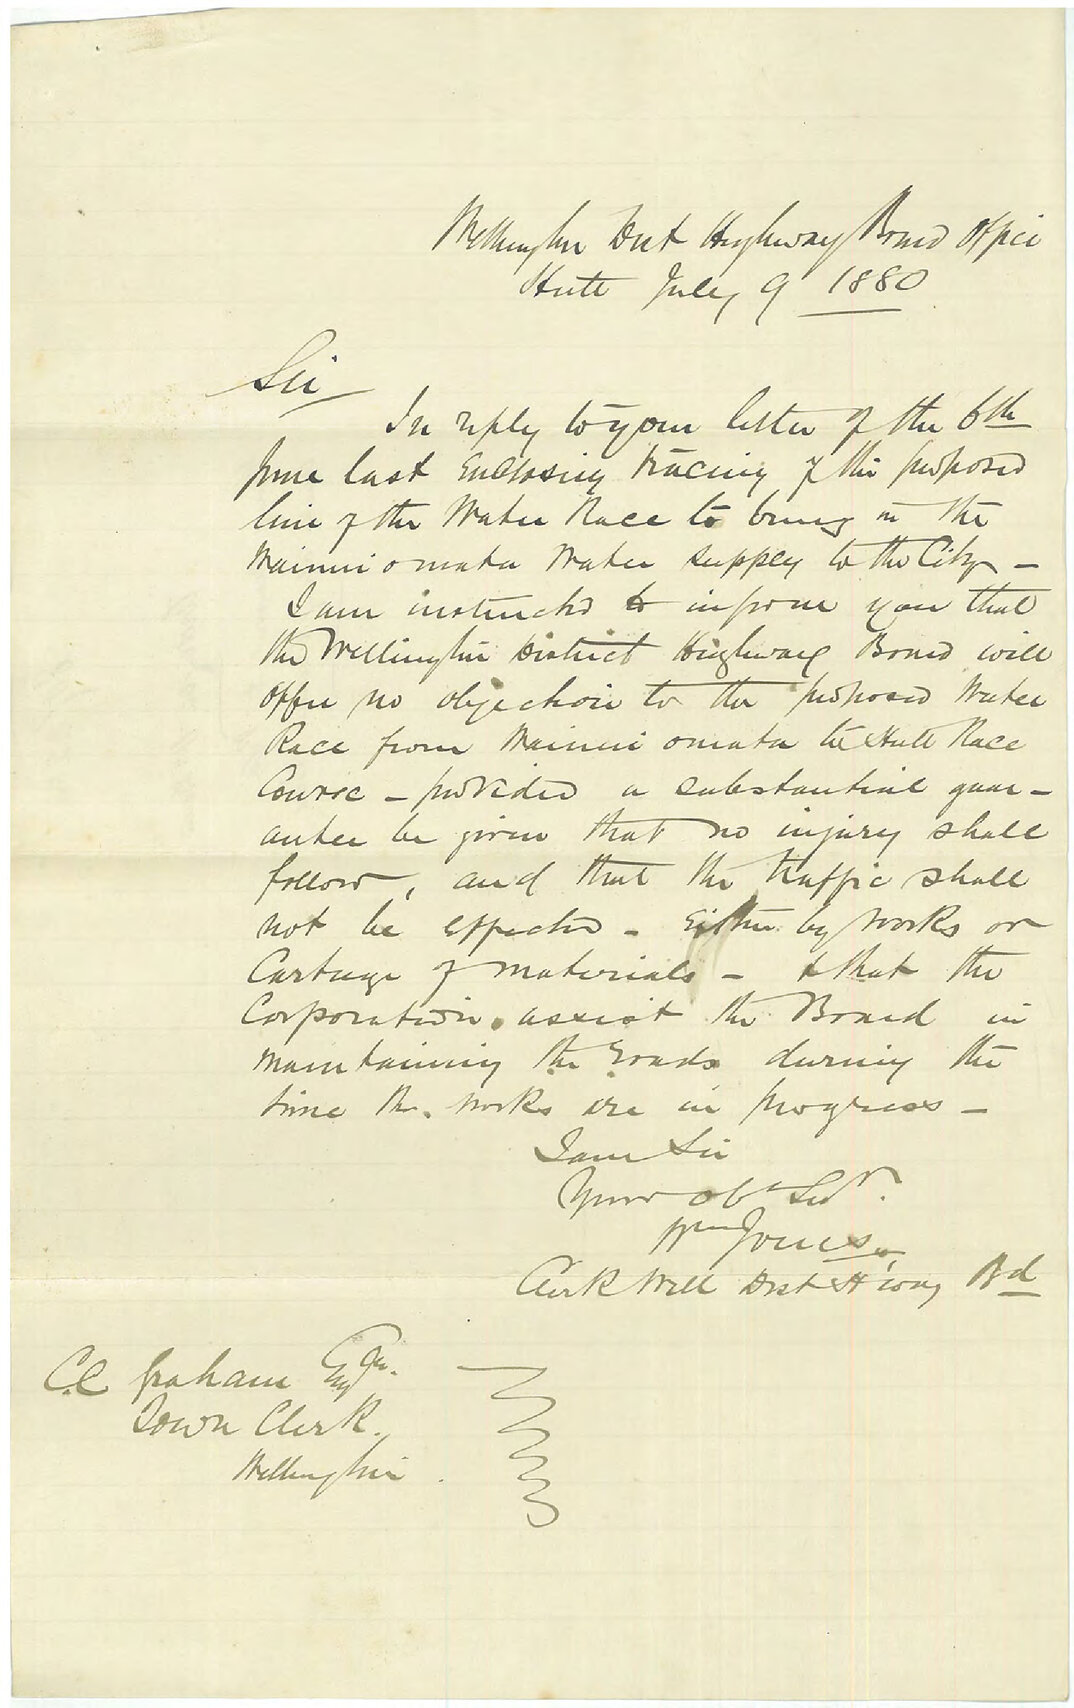 Wellington Dist Highway Board Office
Hutt July 9 1880
Sir
In reply to your letter of the 6th
June last Enclosing tracing of the proposed
line of the Water Race to bring in the
Wainui o mata Water supply to the City –
I am instructed to inform you that
the Wellington District Highway Board will
offer no objection to the proposed Water
Race from Wainui omata to Hutt Race
Course – provided a substantial guar-
antee be given that no injury shall
follow, and that the traffic shall
not be effected – Either by works or
Cartage of materials – & that the
Corporation assist the Board in
maintaining the roads during the
time the works are in progress –
I am Sir
Your Obt Servt.
Wm Jones
Clerk Well Dist H'way Bd
C.C Graham Esqr.
Town Clerk.
Wellington